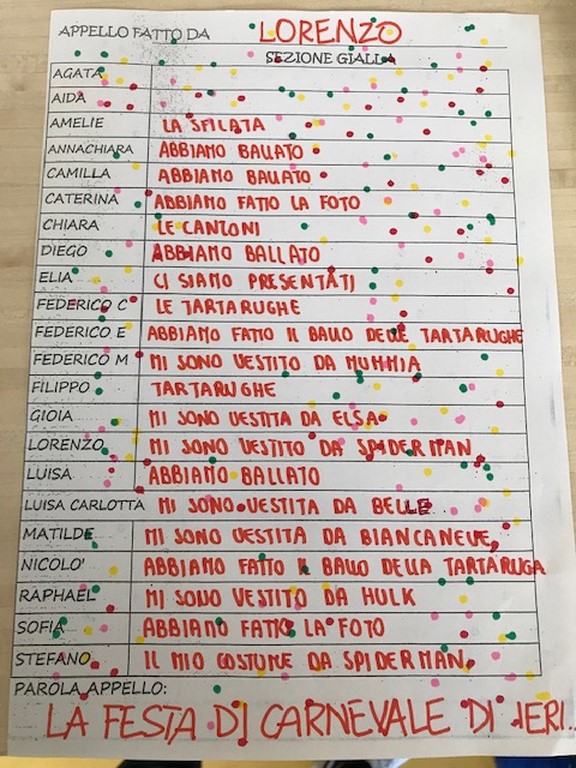 APPELLO FATTO DA LORENZO
SEZIONE GIALLA
AGATA
AIDA
AMELIE LA SFILATA
ANNACHIARA ABBIAMO BALLATO
CAMILLA ABBIAMO BALLATO
CATERINA ABBIAMO FATTO LA FOTO
CHIARA LE CANZONI
DIEGO ABBIAMO BALLATO
ELIA CI SIAMO PRESENTATI
FEDERICO C LE TARTARUGHE
FEDERICO E ABBIAMO FATTO IL BALLO DELLE TARTARUGHE
FEDERICO M MI SONO VESTITO DA MUMMIA
FILIPPO TARTARUGHE
GIOIA MI SONO VESTITA DA ELSA
LORENZO MI SONO VESTITO DA SPIDERMAN
LUISA ABBIAMO BALLATO
LUISA CARLOTTA MI SONO VESTITA DA BELLE
MATILDE MI SONO VESTITA DA BIANCANEVE
NICOLO' ABBIAMO FATTO IL BALLO DELLA TARTARUGA
RAPHAEL MI SONO VESTITO DA HULK
SOFIA ABBIAMO FATTO LA FOTO
STEFANO IL MIO COSTUME DA SPIDERMAN
PAROLA APPELLO:
LA FESTA DI CARNEVALE DI IERI...